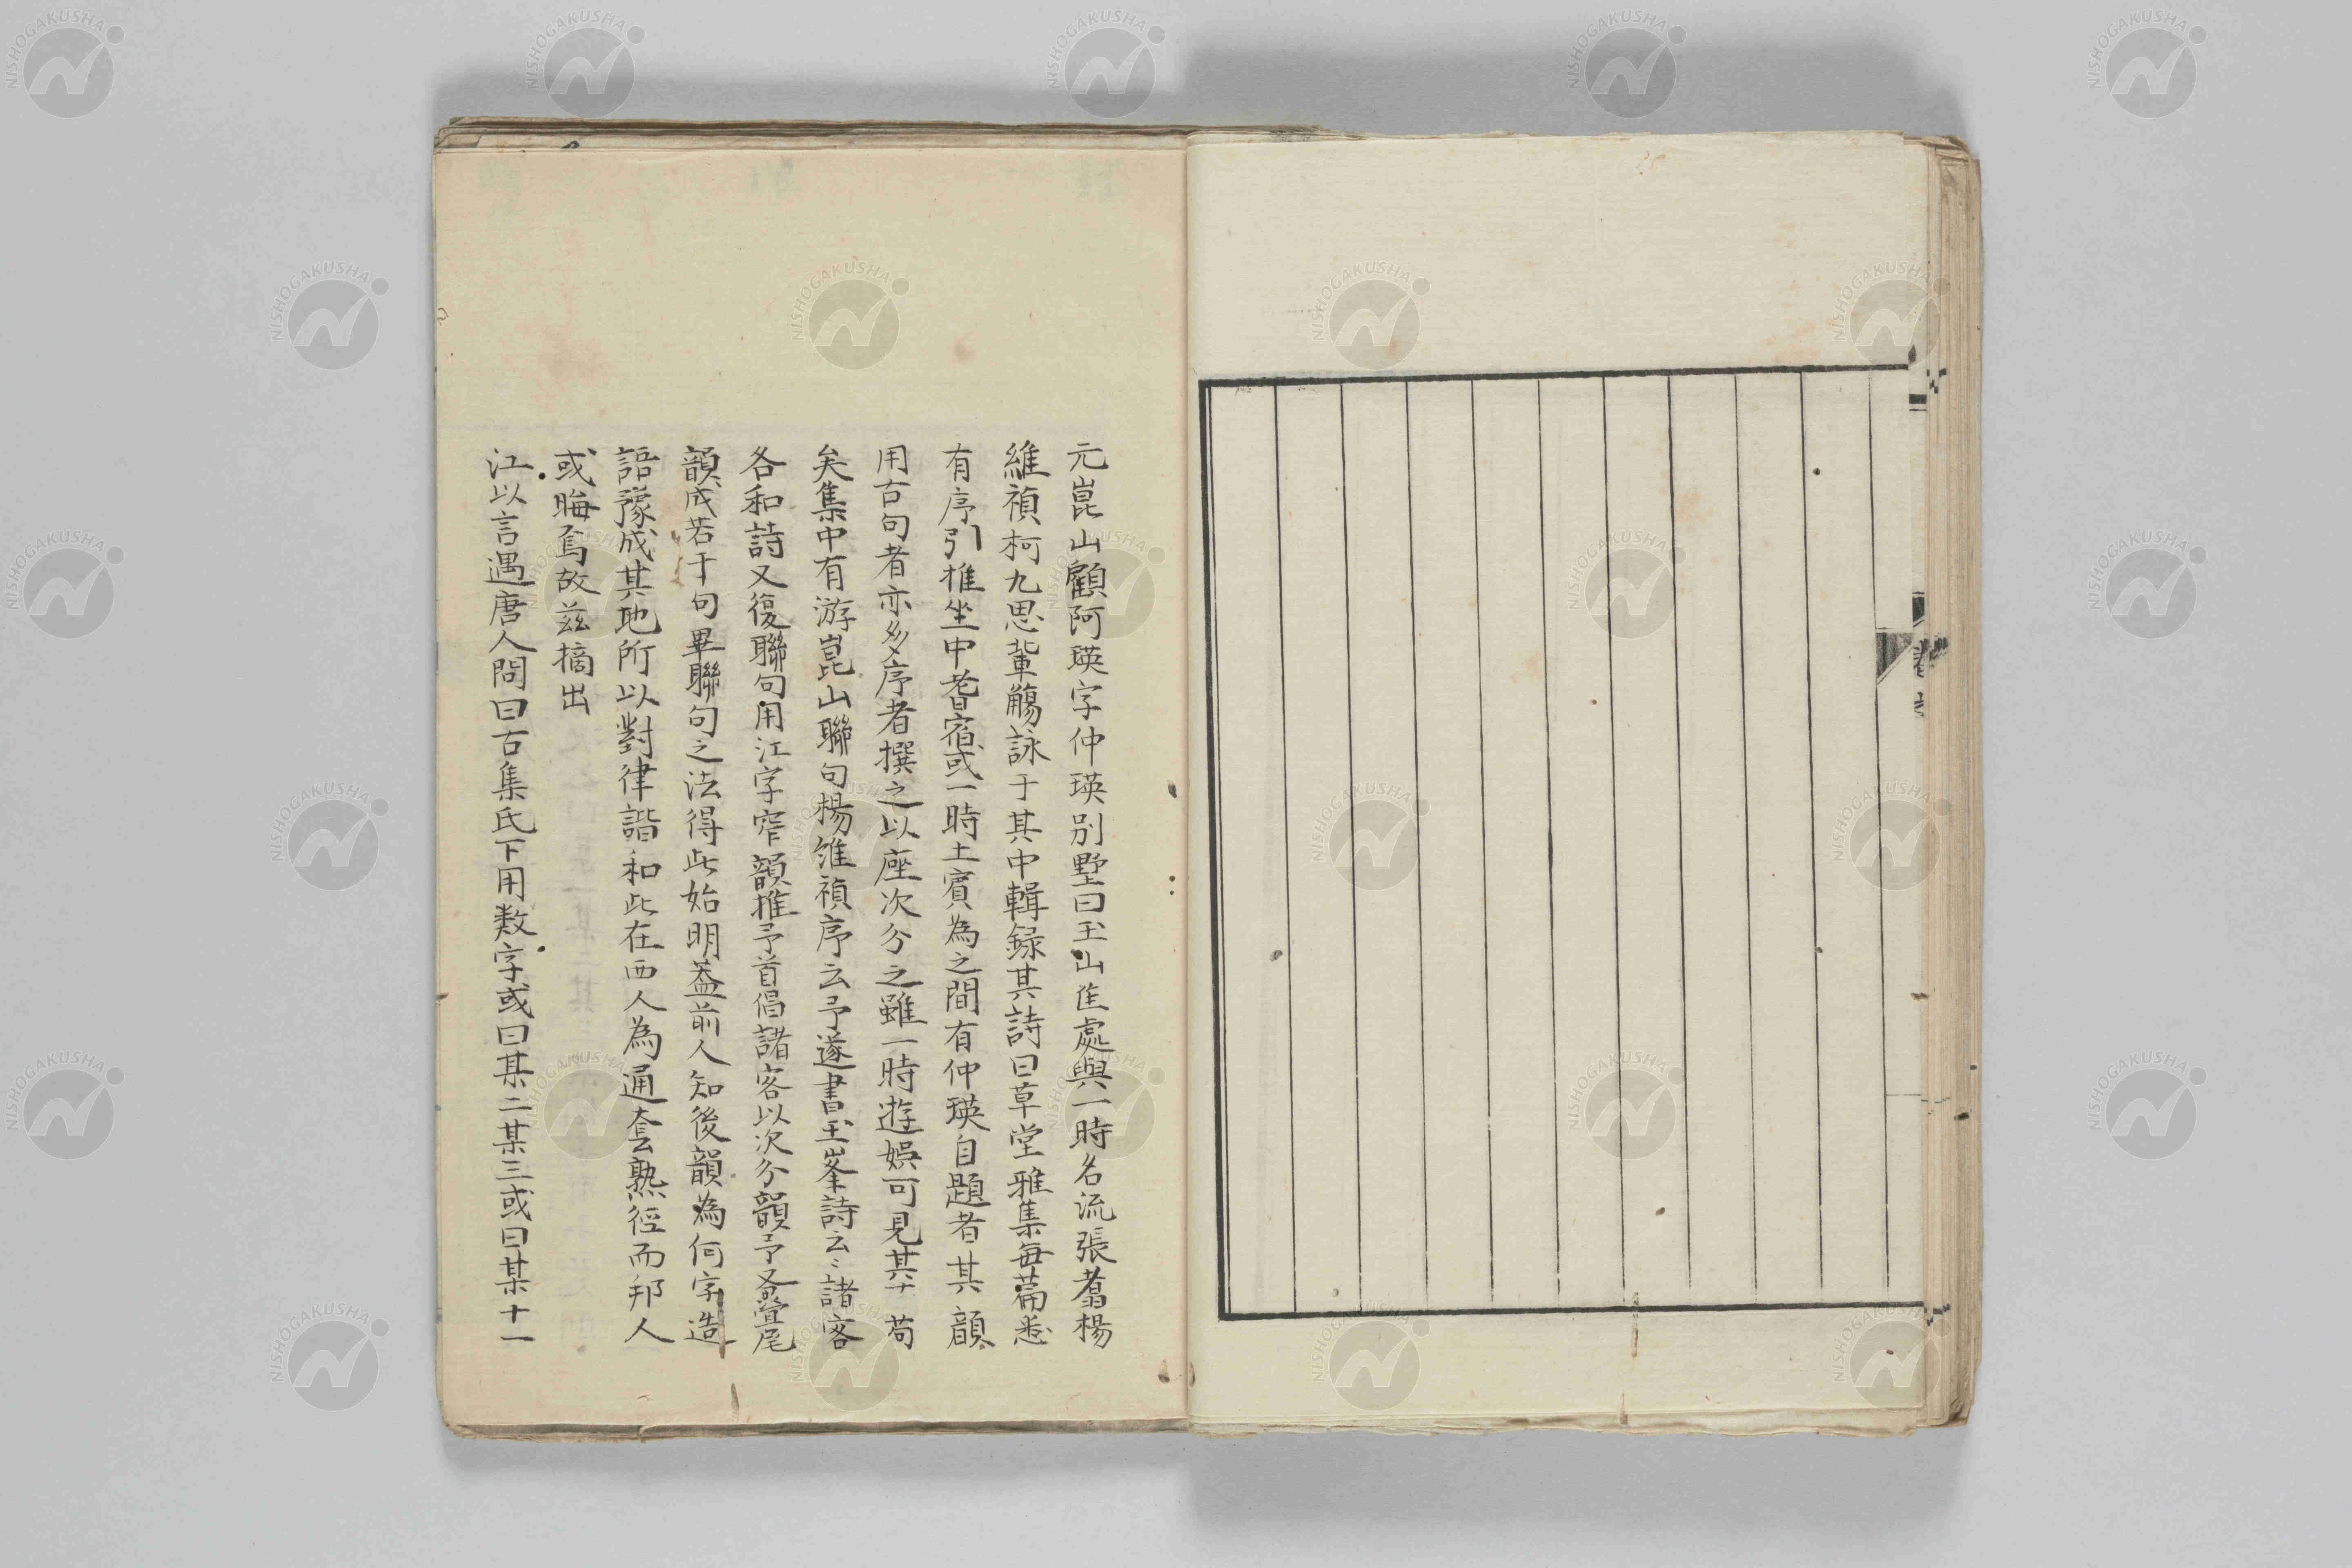 元崑山顧阿瑛字仲瑛別墅曰玉山隹處與一時名流張翥楊
維禎柯九思輩觴詠于其中輯録其詩曰草堂雅集每篇悉
有序引推坐中耆宿或一時土賓為之間有仲瑛自題者其韻
用古句者亦多序者撰之以座次分之雖一時遊娯可見其不苟
矣集中有游崑山聯句楊維禎序云予遂書玉峯詩云〻諸客
各和詩又復聯句用江字窄韻推予首倡諸客以次分韻予又疊尾
韻成若于句畢聯句之法得此始明蓋前人知後韻為何字造
語豫成其地所以對律諧和此在西人為通套熟徑而邦人
或晦焉故茲摘出
江以言遇唐人問曰古集氏下用数字或曰某二某三或曰某十一
NISHOGAKUSHA